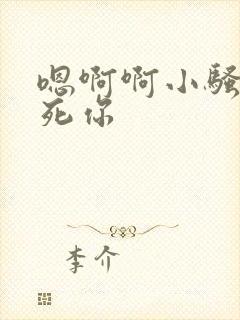 嗯啊啊小骚
死你
李介